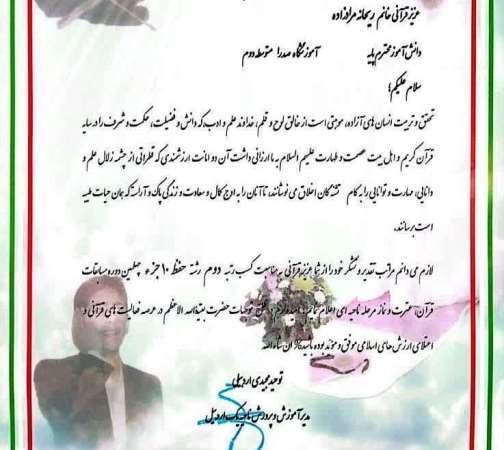 عزیز قرآنی خانم ریحانه مرادزاده
دانش آموز محترم پایه آموزشگاه صدرا متوسطه دوم
سلام علیکم؛
تحقق و تربیت انسان های آزاده، موهبتی است از خالق لوح و قلم، خداوند علم و ادب، که دانش و فضیلت، حکمت و شرف را در سایه
قرآن کریم و اهل بیت عصمت و طهارت علیهم السلام به ما ارزانی داشت آن دو امانت ارزشمندی که قطراتی از چشمه زلال علم و
دانایی، مهارت و توانایی را به کام تشنگان اخلاق می نوشانند، تا آنان را به اوج کمال و سعادت و زندگی پاک و آراسته که همان حیات طیبه
است برسانند.
لازم می دانم مراتب تقدیر و تشکر خود را از شما عزیز قرآنی به مناسبت کسب رتبه دوم رشته حفظ ۱۰ جزء چهلمین دوره مسابقات
قرآن، عترت و نماز مرحله ناحیه ای اعلام نمایم. امید وارم توجهات حضرت بقیة الله الاعظم در عرصه فعالیت های قرآنی و
اعتلای ارزش های اسلامی موفق و موید بوده باشید. ان شاءالله
توحید مجیدی اردبیلی
مدیر آموزش و پرورش ناحیه یک اردبیل